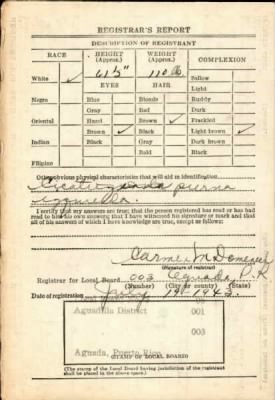 REGISTRAR'S REPORT
DESCRIPTION OF REGISTRANT
RACE HEIGHT (Approx.) WEIGHT (Approx.) COMPLEXION
White ✓ 110 lb Sallow
EYES HAIR Light
Negro Blue Blonde Ruddy
Gray Red Dark
Oriental Hazel Brown ✓ Freckled
Brown ✓ Black Light brown ✓
Indian Black Gray Dark brown
Bald Black
Filipino
Other obvious physical characteristics that will aid in identification
pierna
I certify that my answers are true; that the person registered has read or has had
read to him his own answers; that I have witnessed his signature or mark and that
all of his answers of which I have knowledge are true, except as follows:
Carmen M Domenech
(Signature of registrar)
Registrar for Local Board 003 Aguada, P.R.
(Number) (City or county) (State)
Date of registration 1943
Aguadilla District
001
003
Aguada, Puerto Rico
STAMP OF LOCAL BOARD
(The stamp of the Local Board having jurisdiction of the registrant
shall be placed in the above space.)